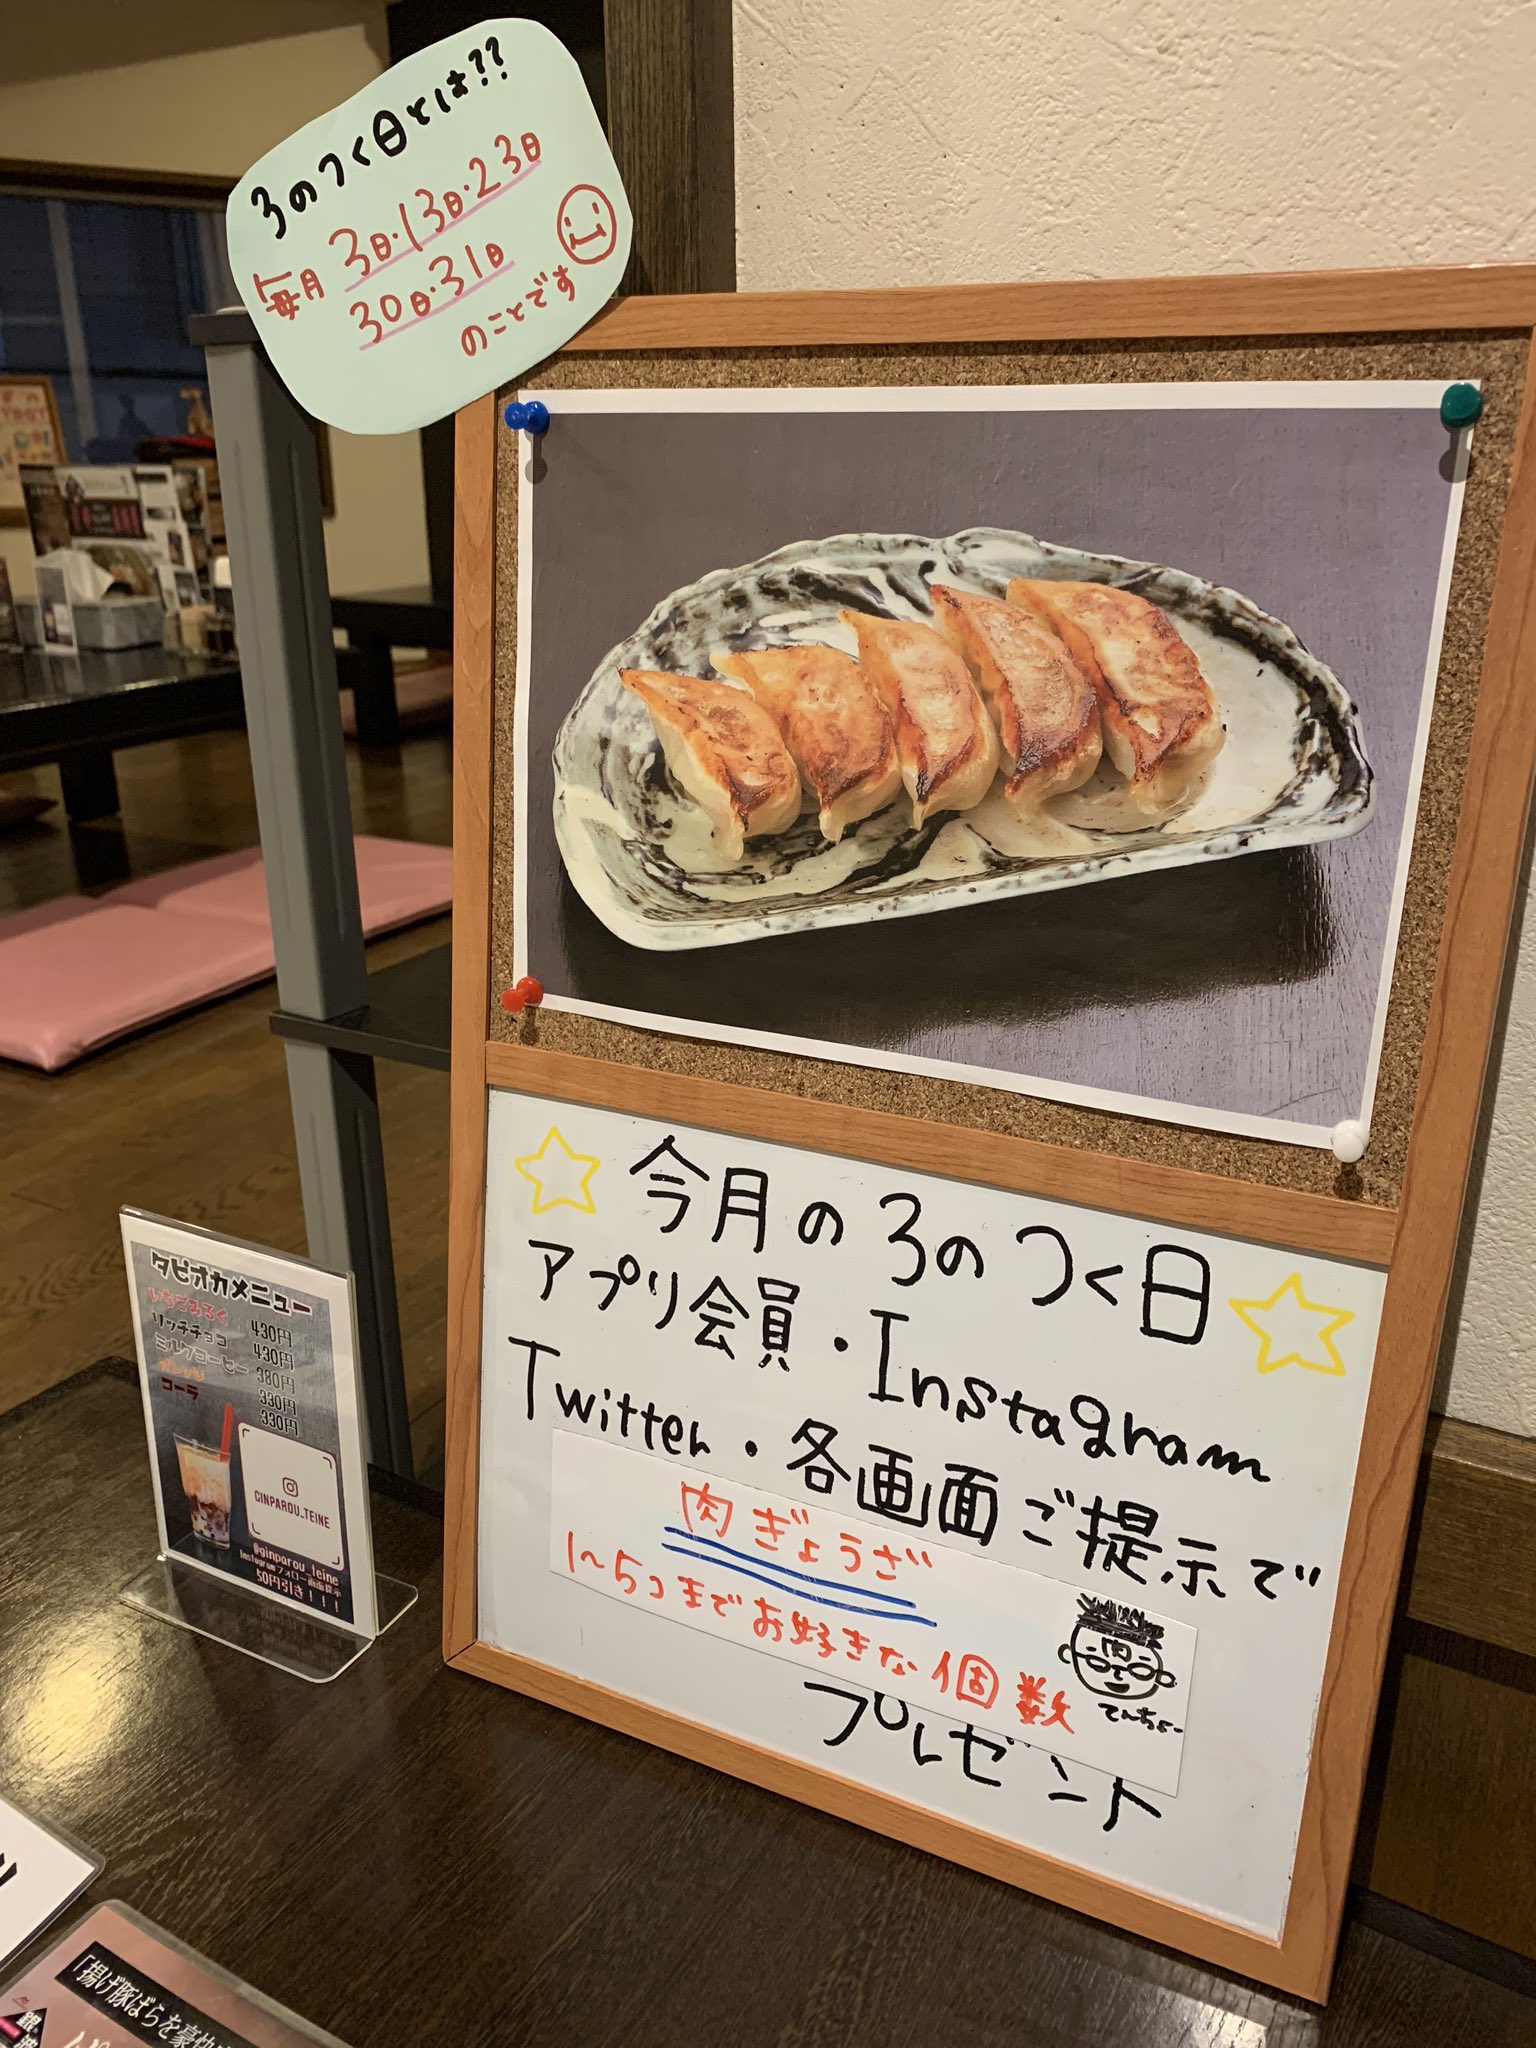 3のつく日とは??
毎月 3日・13日・23日
30日・31日
のことです
今月の3のつく日
アプリ会員・Instagram
Twitter・各画面ご提示で
肉ぎょうざ
1〜5コまでお好きな個数
肉
てんちょー
プレゼント
タピオカメニュー
いちごみるく 430円
リッチチョコ 430円
ミルクコーヒー 380円
オレンジ 330円
コーラ 330円
GINPAROU_TEINE
@ginparou_teine
Instagramフォロー画面提示
50円引き!!!
「揚げ豚ばらを豪快